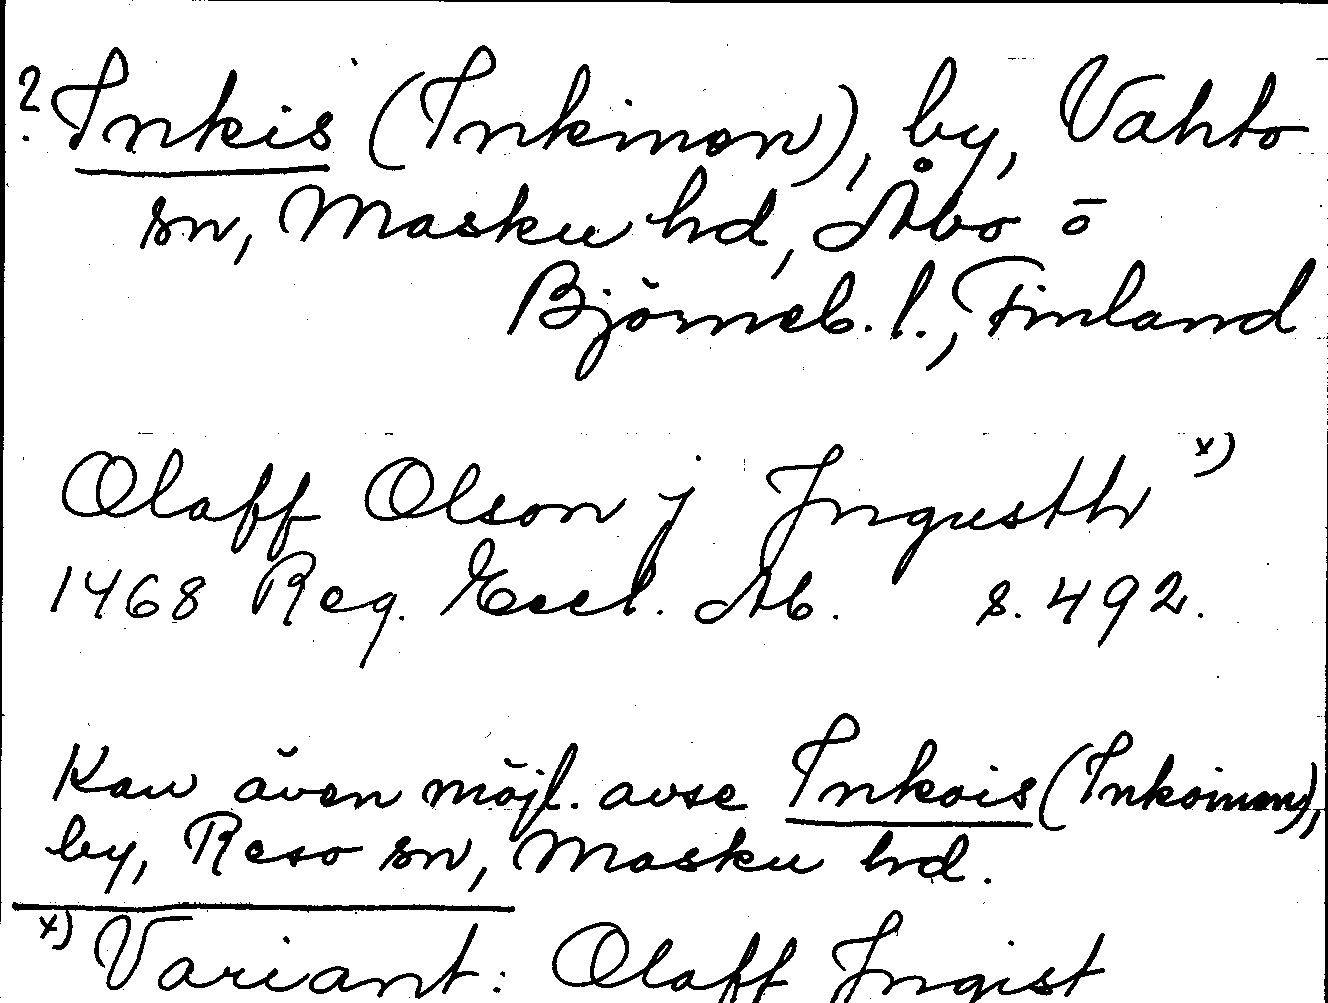 ? Inkis (Inkinen), by, Vahto
sn, Masku hd, Åbo o
Björneb. l., Finland
Olaff Olson j Ingusth x)
1468 Reg. Eccl. Ab. s. 492.
Kan även möjl. avse Inkois (Inkoinen),
by, Reso sn, Masku hd.
x) Variant: Olaff Ingist